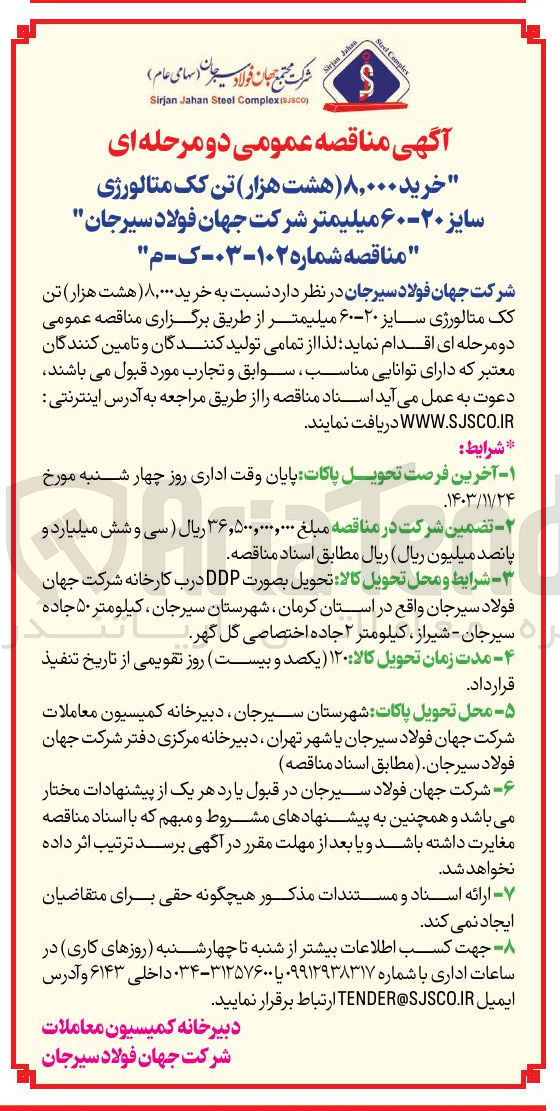 Sirjan Jahan Steel Complex
شرکت مجتمع جهان فولاد سیرجان (سهامی عام)
Sirjan Jahan Steel Complex (SJSCO)
آگهی مناقصه عمومی دو مرحله ای
"خرید ۸,۰۰۰ (هشت هزار) تن کک متالورژی
سایز ۲۰-۶۰ میلیمتر شرکت جهان فولاد سیرجان"
"مناقصه شماره ۱۰۲-۰۳-ک-م"
شرکت جهان فولاد سیرجان در نظر دارد نسبت به خرید ۸,۰۰۰ (هشت هزار) تن
کک متالورژی سایز ۲۰-۶۰ میلیمتر از طریق برگزاری مناقصه عمومی
دو مرحله ای اقدام نماید؛ لذا از تمامی تولید کنندگان و تامین کنندگان
معتبر که دارای توانایی مناسب، سوابق و تجارب مورد قبول می باشند،
دعوت به عمل می آید اسناد مناقصه را از طریق مراجعه به آدرس اینترنتی :
WWW.SJSCO.IR دریافت نمایند.
*شرایط:
۱- آخرین فرصت تحویل پاکات: پایان وقت اداری روز چهار شنبه مورخ
۱۴۰۳/۱۱/۲۴.
۲- تضمین شرکت در مناقصه مبلغ ۳۶,۵۰۰,۰۰۰,۰۰۰ ریال (سی و شش میلیارد و
پانصد میلیون ریال) ریال مطابق اسناد مناقصه.
۳- شرایط و محل تحویل کالا: تحویل بصورت DDP درب کارخانه شرکت جهان
فولاد سیرجان واقع در استان کرمان، شهرستان سیرجان، کیلومتر ۵۰ جاده
سیرجان - شیراز، کیلومتر ۲ جاده اختصاصی گل گهر.
۴- مدت زمان تحویل کالا: ۱۲۰ (یکصد و بیست) روز تقویمی از تاریخ تنفیذ
قرارداد.
۵- محل تحویل پاکات: شهرستان سیرجان، دبیرخانه کمیسیون معاملات
شرکت جهان فولاد سیرجان یا شهر تهران، دبیرخانه مرکزی دفتر شرکت جهان
فولاد سیرجان. (مطابق اسناد مناقصه)
۶- شرکت جهان فولاد سیرجان در قبول یا رد هر یک از پیشنهادات مختار
می باشد و همچنین به پیشنهادهای مشروط و مبهم که با اسناد مناقصه
مغایرت داشته باشد و یا بعد از مهلت مقرر در آگهی برسد ترتیب اثر داده
نخواهد شد.
۷- ارائه اسناد و مستندات مذکور هیچگونه حقی برای متقاضیان
ایجاد نمی کند.
۸- جهت کسب اطلاعات بیشتر از شنبه تا چهارشنبه (روزهای کاری) در
ساعات اداری با شماره ۰۹۹۱۲۹۳۸۳۱۷ یا ۳۱۲۵۷۶۰۰-۰۳۴ داخلی ۶۱۴۳ و آدرس
ایمیل TENDER@SJSCO.IR ارتباط برقرار نمایید.
دبیرخانه کمیسیون معاملات
شرکت جهان فولاد سیرجان